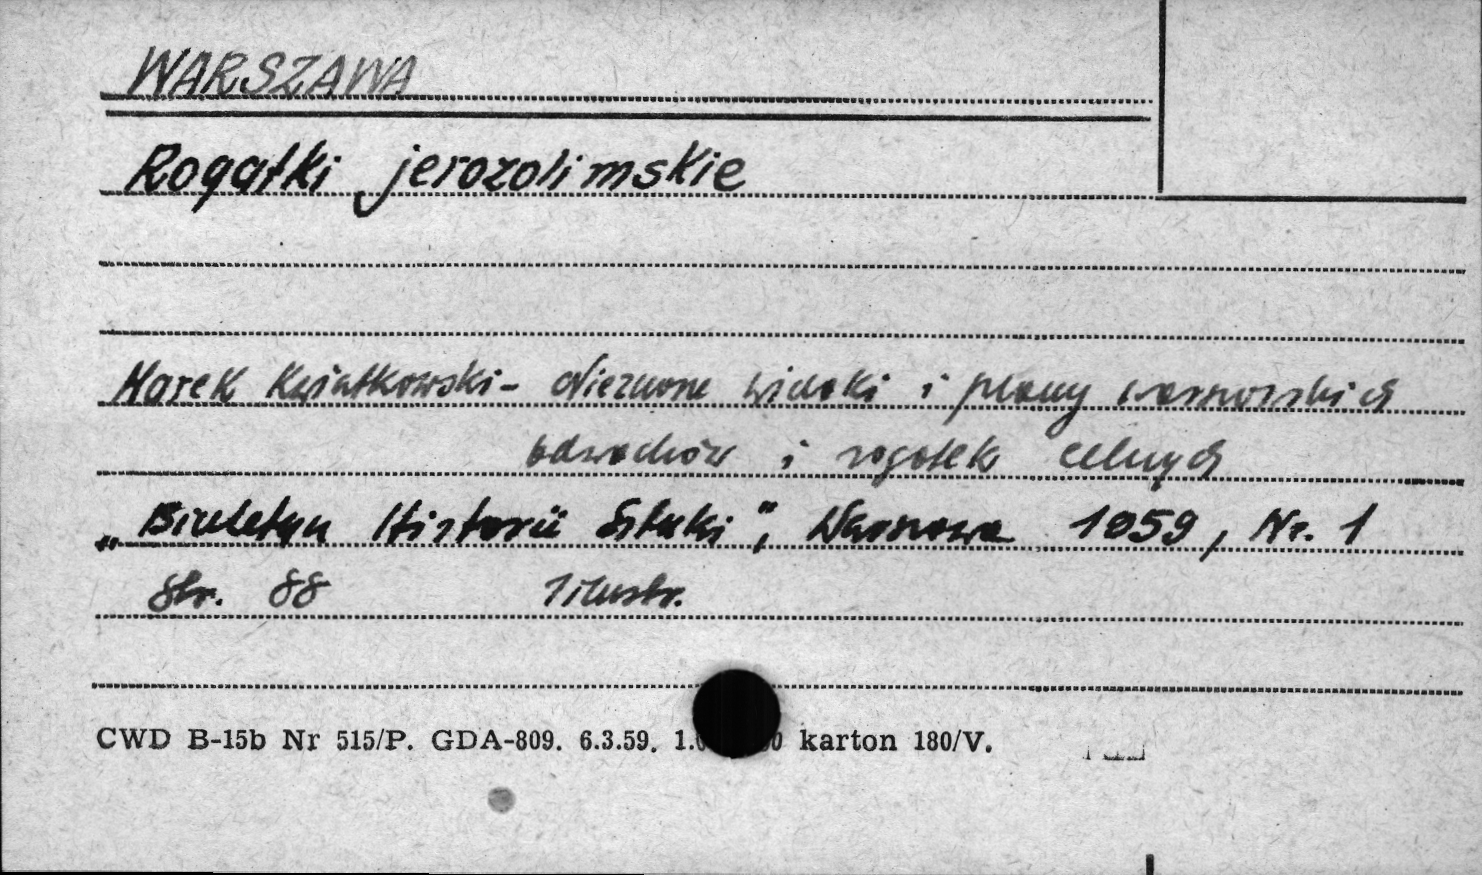 WARSZAWA
Rogatki jerozolimskie
Marek Kwiatkowski - Nieznane widoki i plany warszawskich
odwachów i rogatek celnych
„Biuletyn Historii Sztuki", Warszawa 1959, Nr. 1
Str. 88 Ilustr.
CWD B-15b Nr 515/P. GDA-809. 6.3.59. karton 180/V.